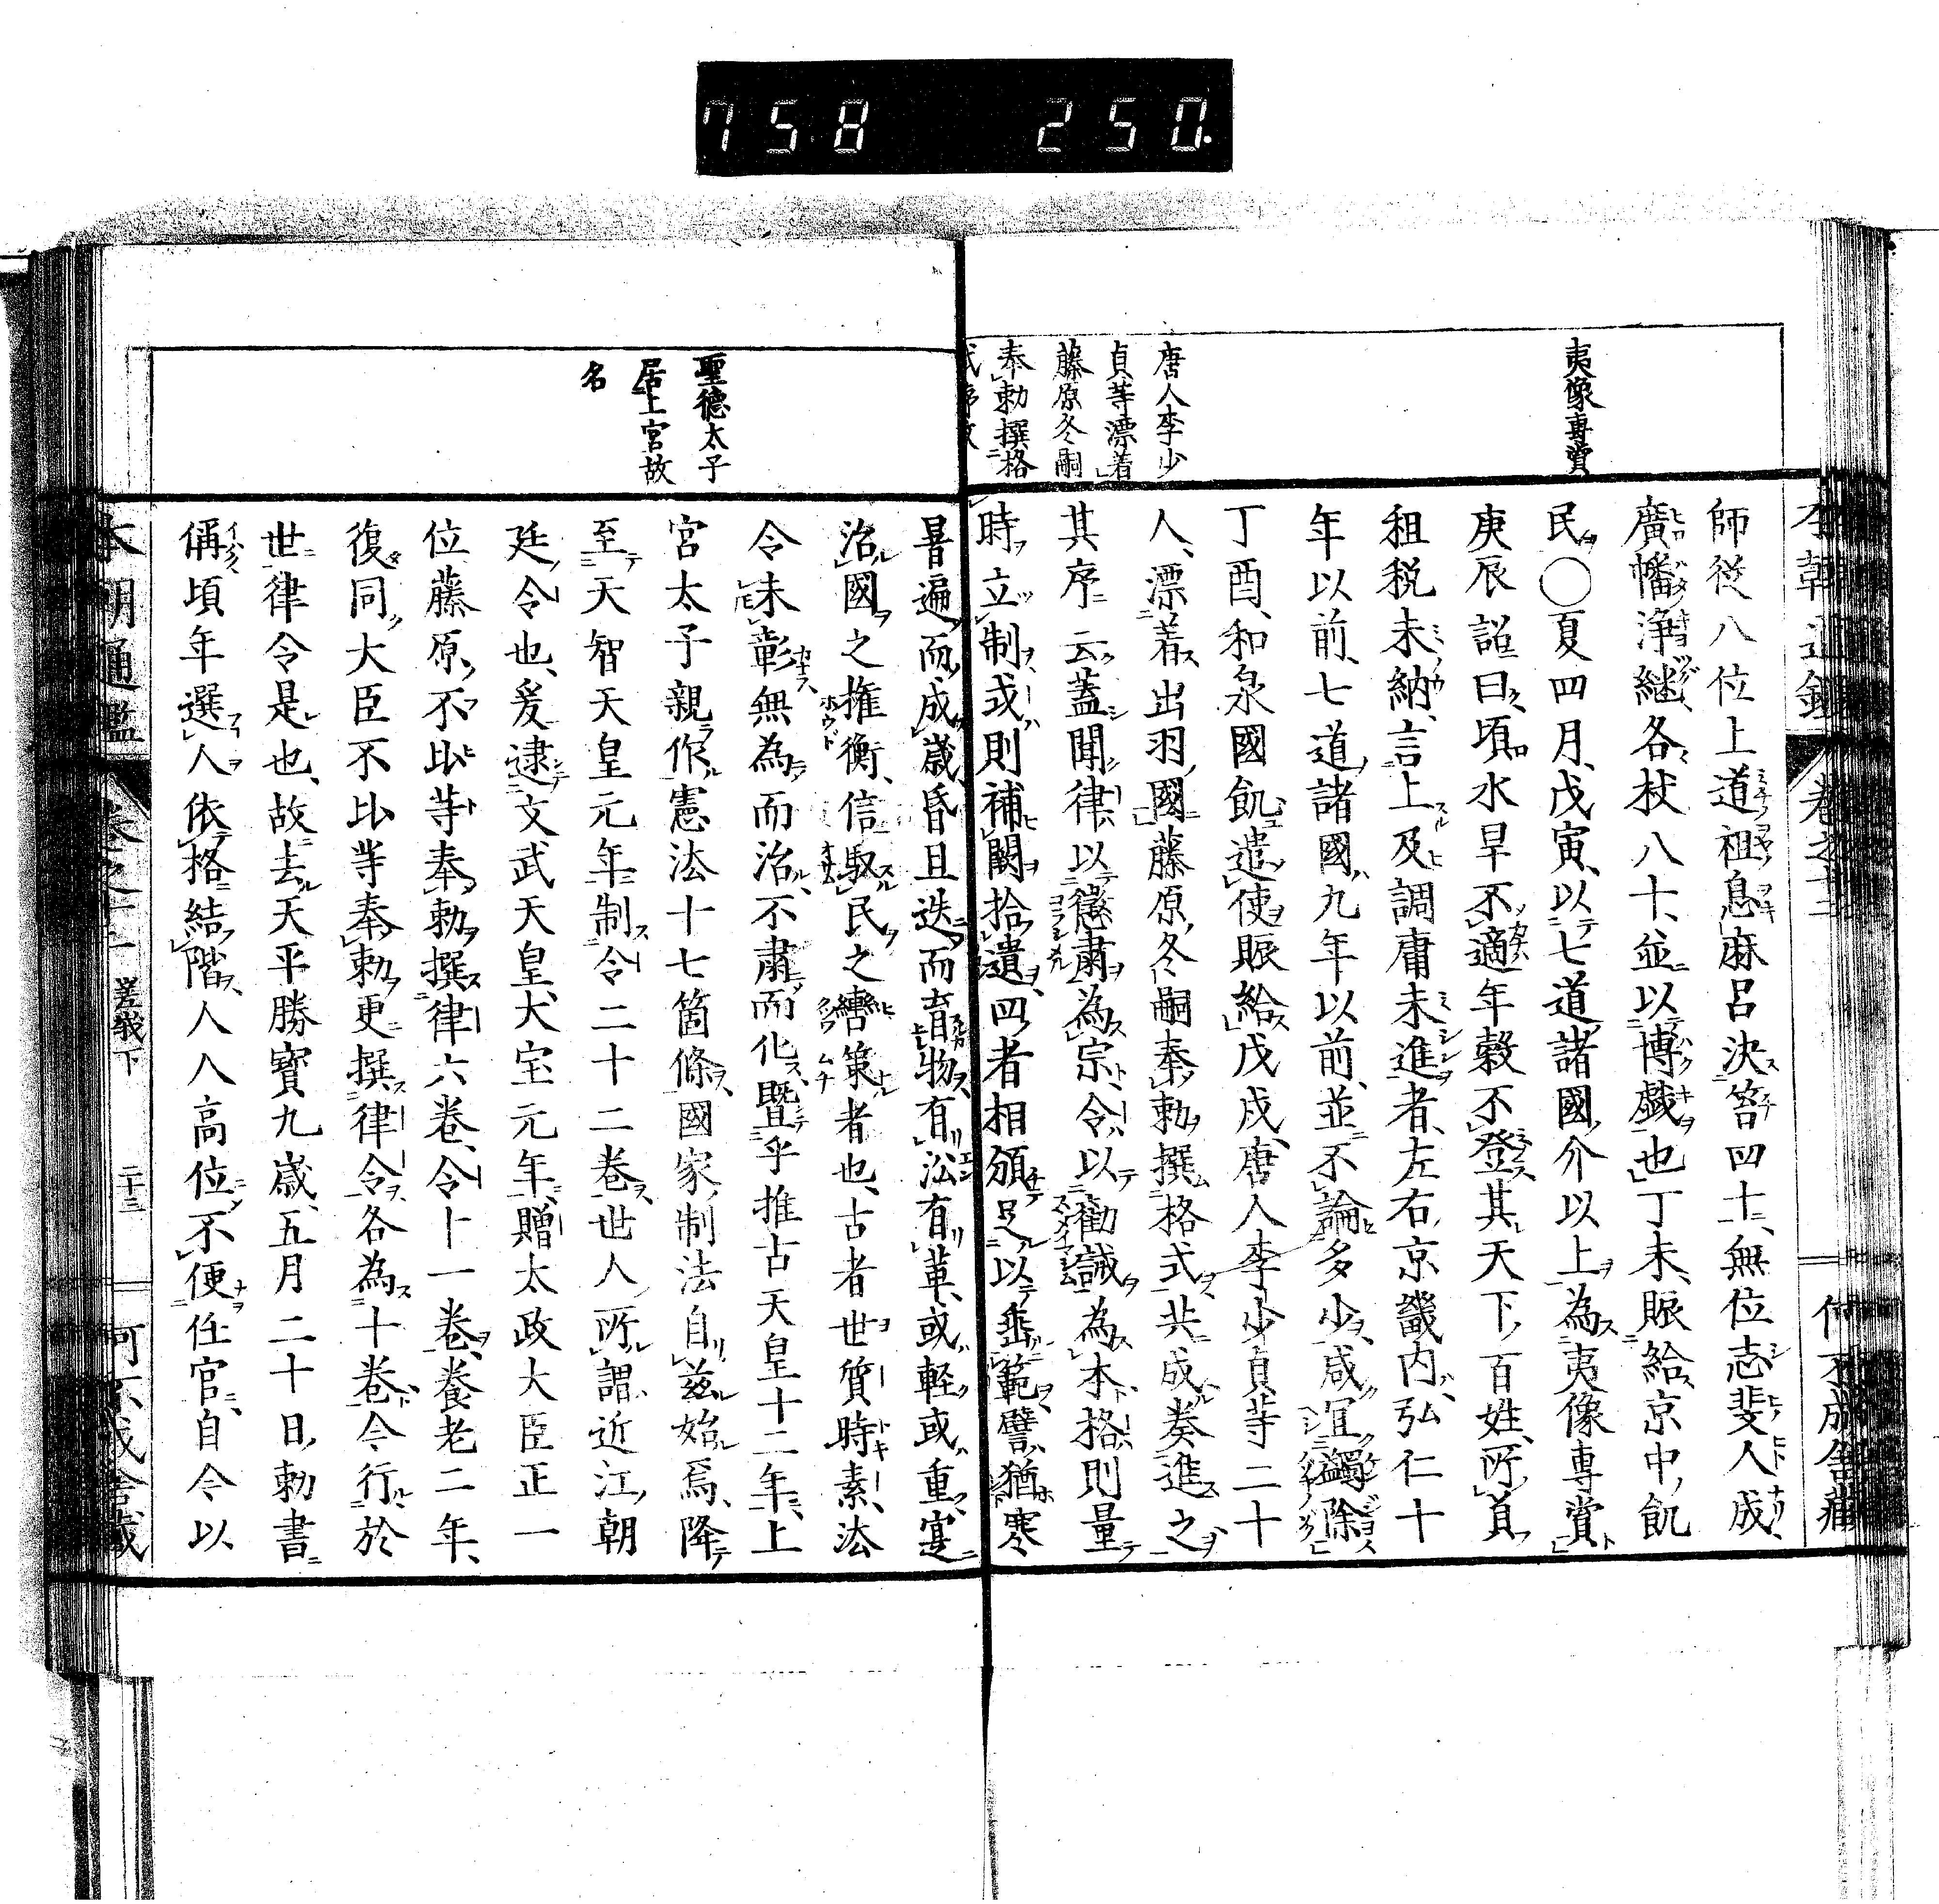 758 250.
夷像専賞
唐人李少
貞等漂着
藤原冬嗣
奉勅撰格
師従八位上道祖息麻呂決笞四十、無位志斐人成、
廣幡浄継、各杖八十、並以博戯也丁未、賑給京中飢
民〇夏四月、戊寅、以七道諸國介以上為夷像専賞
庚辰詔曰頃水旱不適年穀不登其天下百姓、所負
租税未納、言上及調庸未進者、左右京畿内、弘仁十
年以前、七道諸國九年以前、並不論多少、咸宜蠲除
丁酉、和泉國飢遣使賑給戊戌、唐人李少貞等二十
人、漂着出羽國藤原冬嗣奉勅撰格式共成奏進之
其序云蓋聞律以懲肅為宗、令以勸誡為本格則量
時立制式則補闕拾遺四者相須足以垂範譬猶寒
聖徳太子
居上宮故
名
暑遍而成歳、昏旦迭而育物、有沿有革、或軽或重、寔
治國之権衡、信馭民之轡策者也、古者世質時素、法
令未彰無為而治、不肅而化、曁乎推古天皇十二年、上
宮太子親作憲法十七箇條、國家制法自茲始焉、降
至天智天皇元年制令二十二巻、世人所謂近江朝
廷令也、爰逮文武天皇大宝元年、贈太政大臣正一
位藤原不比等奉勅撰律六巻、令十一巻、養老二年、
復同大臣不比等奉勅更撰律令各為十巻今行於
世律令是也、故去天平勝寳九歳、五月二十日、勅書
偁頃年選人依格結階、人人高位不便任官、自今以
本朝通鑑 巻之十一 嵯峨下 二十三